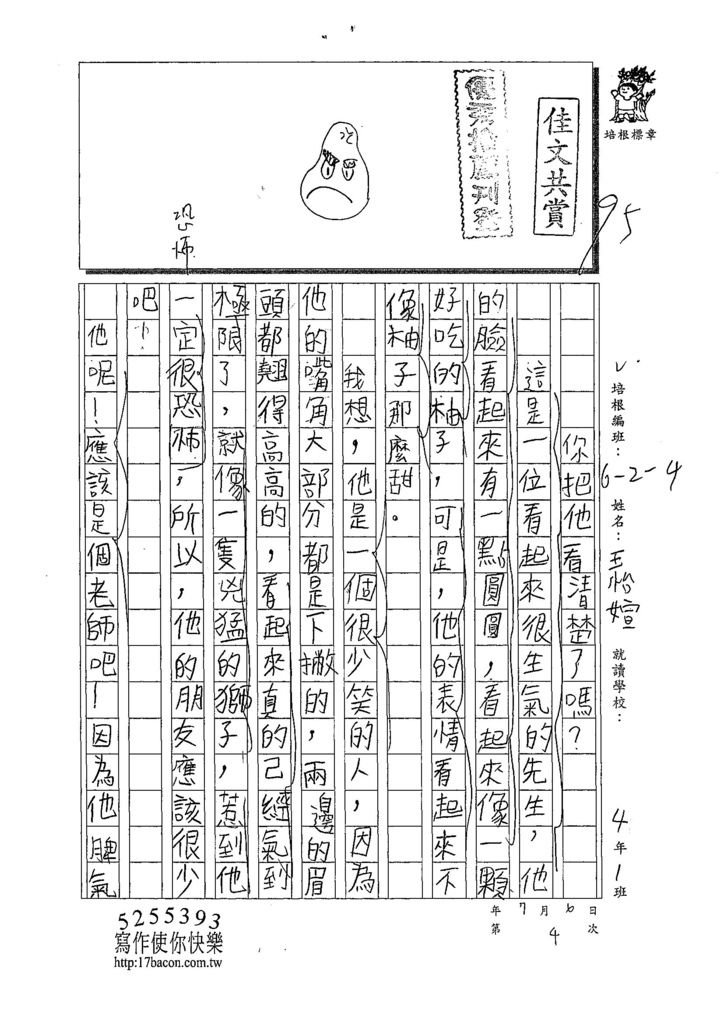 培根標章
佳文共賞
95
恐怖
培根編班：6-2-4 姓名：王怡媗 就讀學校： 4年1班
年7月6日
第4次
你把他看清楚了嗎？
這是一位看起來很生氣的先生，他
的臉看起來有一點圓圓，看起來像一顆
好吃的柚子，可是，他的表情看起來不
像柚子那麼甜。
我想，他是一個很少笑的人，因為
他的嘴角大部分都是下撇的，兩邊的眉
頭都翹得高高的，看起來真的已經氣到
極限了，就像一隻兇猛的獅子，惹到他
一定很恐怖，所以，他的朋友應該很少
吧！
他呢！應該是個老師吧！因為他脾氣
5255393
寫作使你快樂
http:17bacon.com.tw